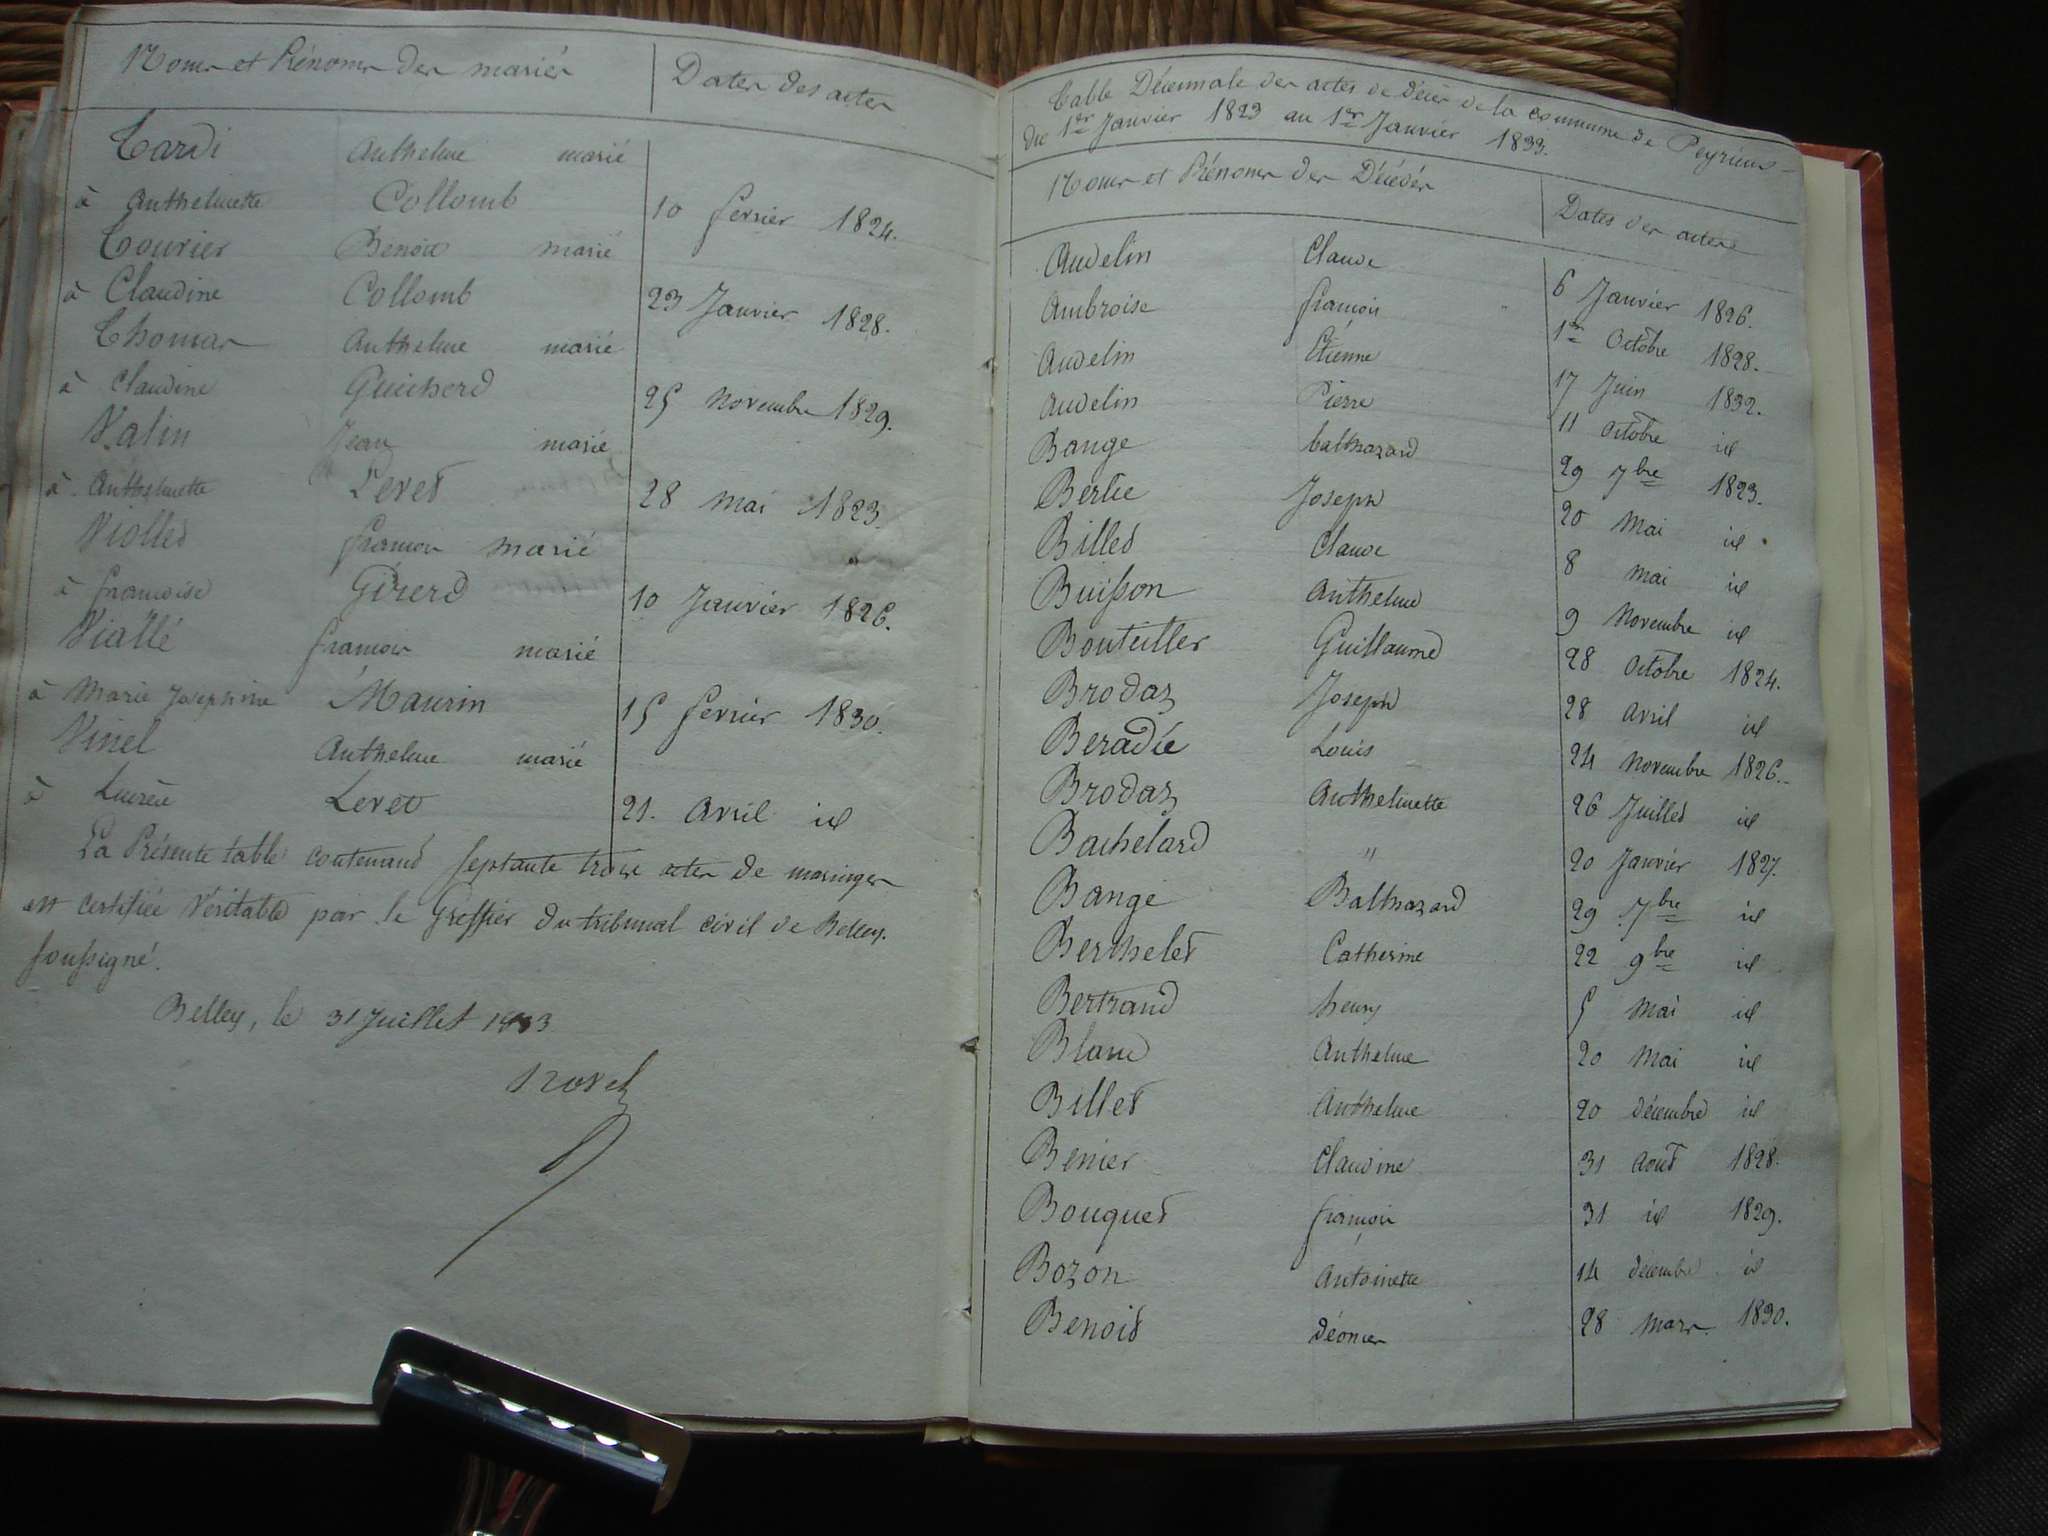 Noms et Prénoms des mariés Dates des actes
Tardi Anthelme marié
à Anthelmette Collomb 10 fevrier 1824.
Tourier Benoit marié
à Claudine Collomb 23 Janvier 1828.
Thomas Anthelme marié
à Claudine Guicherd 25 Novembre 1829.
Valin Jean marié
à Anthelmette Levet 28 Mai 1823.
Viollet françois marié
à françoise Girerd 10 Janvier 1826.
Viallé françois marié
à Marie Josephine Maurin 15 fevrier 1830.
Vinel Anthelme marié
à Lucrèce Levet 21. Avril id
La Présente table contenant septante trois actes de mariages
est certifiée Véritable par le Greffier du tribunal civil de Belley.
soussigné.
Belley, le 31 Juillet 1833
Table Décennale des actes de décès de la commune de Peyrieus
du 1er Janvier 1823 au 1er Janvier 1833.
Noms et Prénoms des Décédés Dates des actes
Audelin Claude 6 Janvier 1826.
Ambroise françois 1er Octobre 1828.
Audelin Etienne 17 Juin 1832.
Audelin Pierre 11 Octobre id
Bange balthazard 29 7bre 1823.
Berlie Joseph 20 Mai id
Billet Claude 8 Mai id
Buisson Anthelme 9 Novembre id
Bouteiller Guillaume 28 Octobre 1824.
Brodaz Joseph 28 Avril id
Beradie Louis 24 Novembre 1826.
Brodaz Anthelmette 26 Juillet id
Bachelard " 20 Janvier 1827.
Bange Balthazard 29 7bre id
Berthelet Catherine 22 9bre id
Bertrand henry 5 Mai id
Blanc Anthelme 20 Mai id
Billet Anthelme 20 décembre id
Benier Claudine 31 Aout 1828.
Bouquet françois 31 id 1829.
Bozon Antoinette 14 décembre id
Benoit déonier 28 Mars 1830.